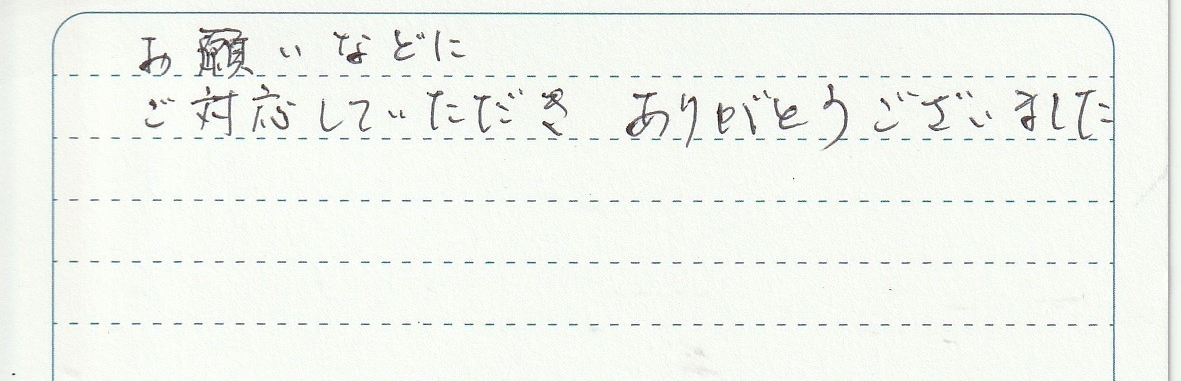 お願いなどに
ご対応していただき ありがとうございました